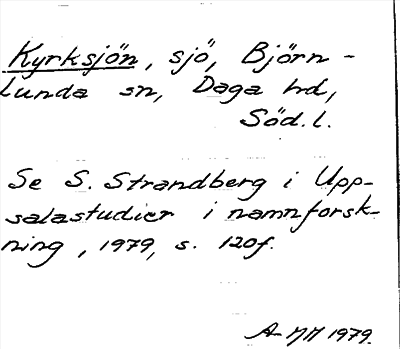 Kyrksjön, sjö, Björn-
lunda sn, Daga hd,
Söd. l.
Se S. Strandberg i Upp-
salastudier i namnforsk-
ning, 1979, s. 120f.
A-MM 1979.